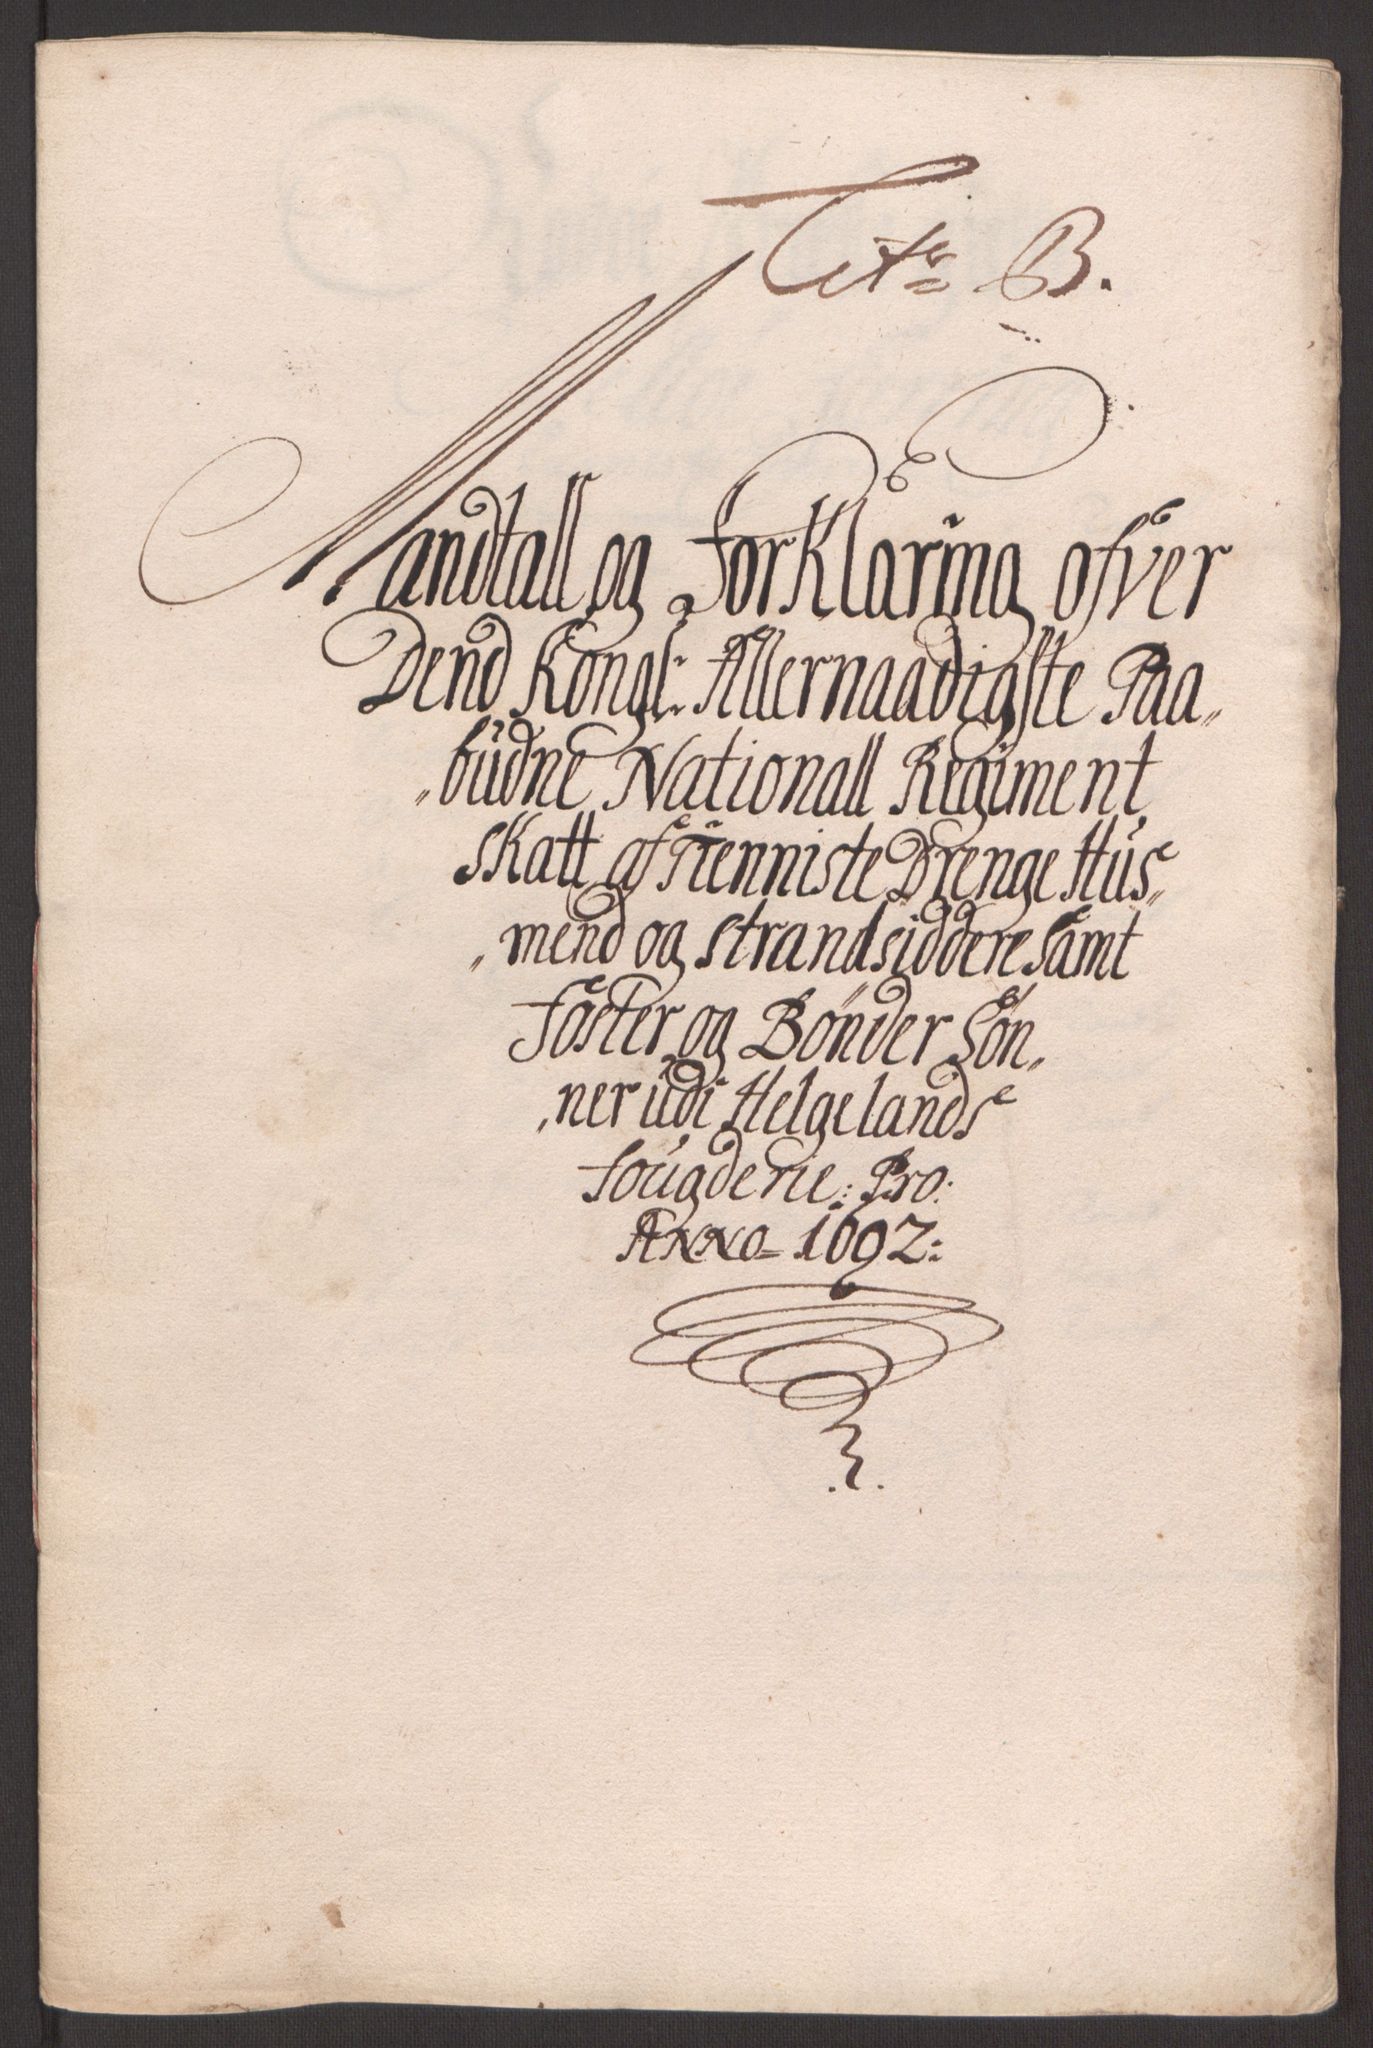 Litr B.
Mandtall og ForKlaring ofver
Dend Kongl: Allernaadigste Paa„
„budne Nationall Regiment
skatt af Tienniste Drenge Hus„
„mend og Strandsiddere Samt
Foster og Bønder Søn„
„ner udi Helgelands
Fougderie: Pro:
Anno 1692: